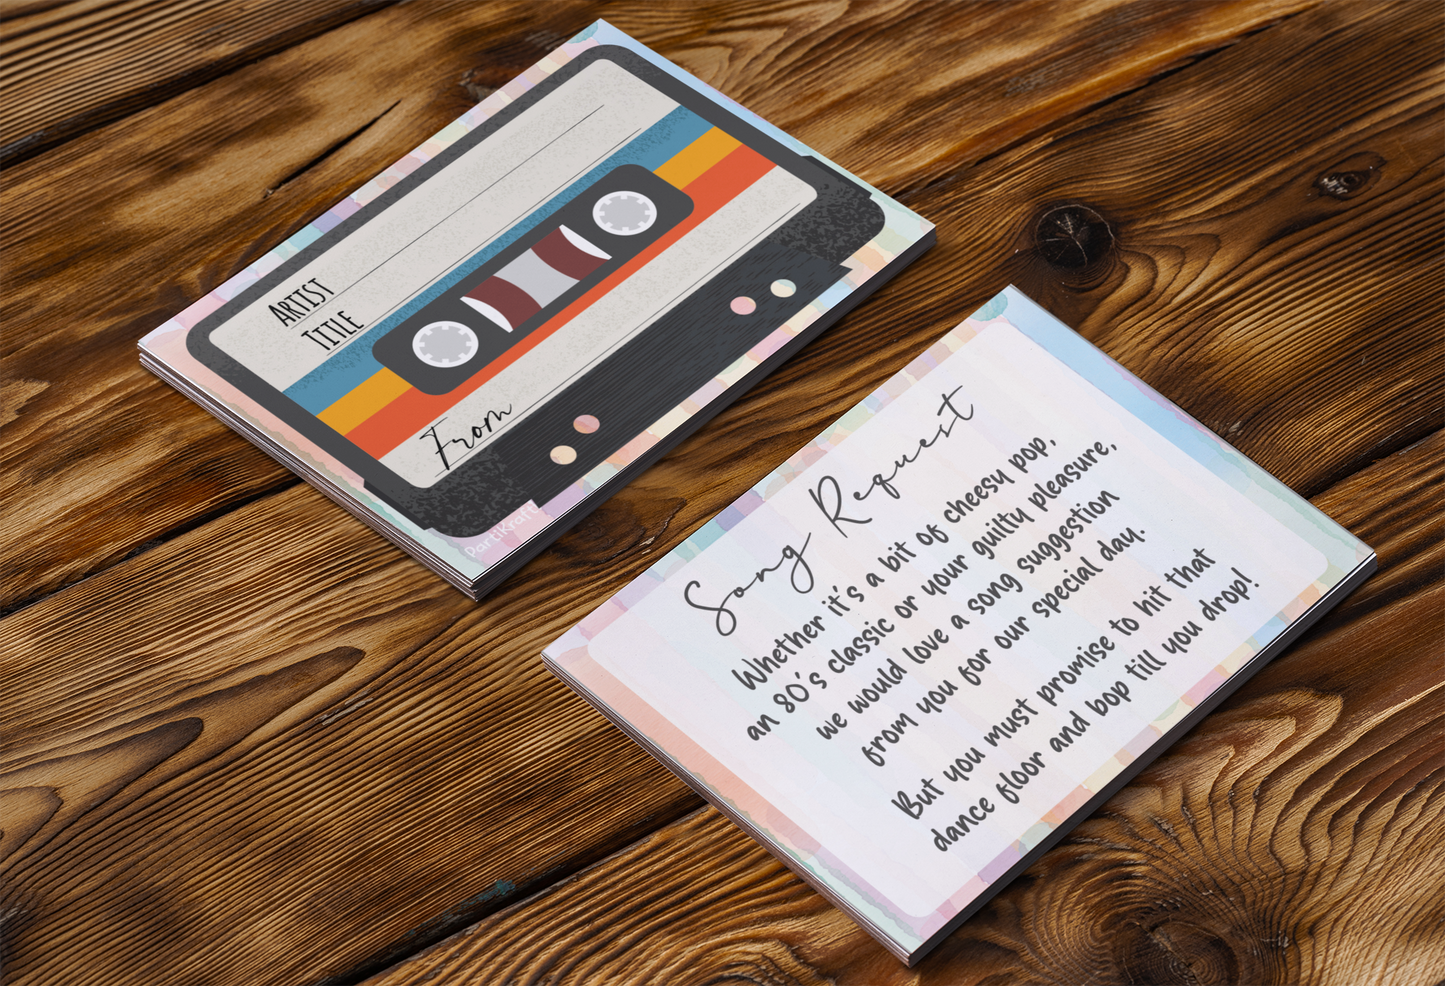 ARTIST
TITLE
From
PartiKraft
Song Request
Whether it's a bit of cheesy pop,
an 80's classic or your guilty pleasure,
we would love a song suggestion
from you for our special day.
But you must promise to hit that
dance floor and bop till you drop!